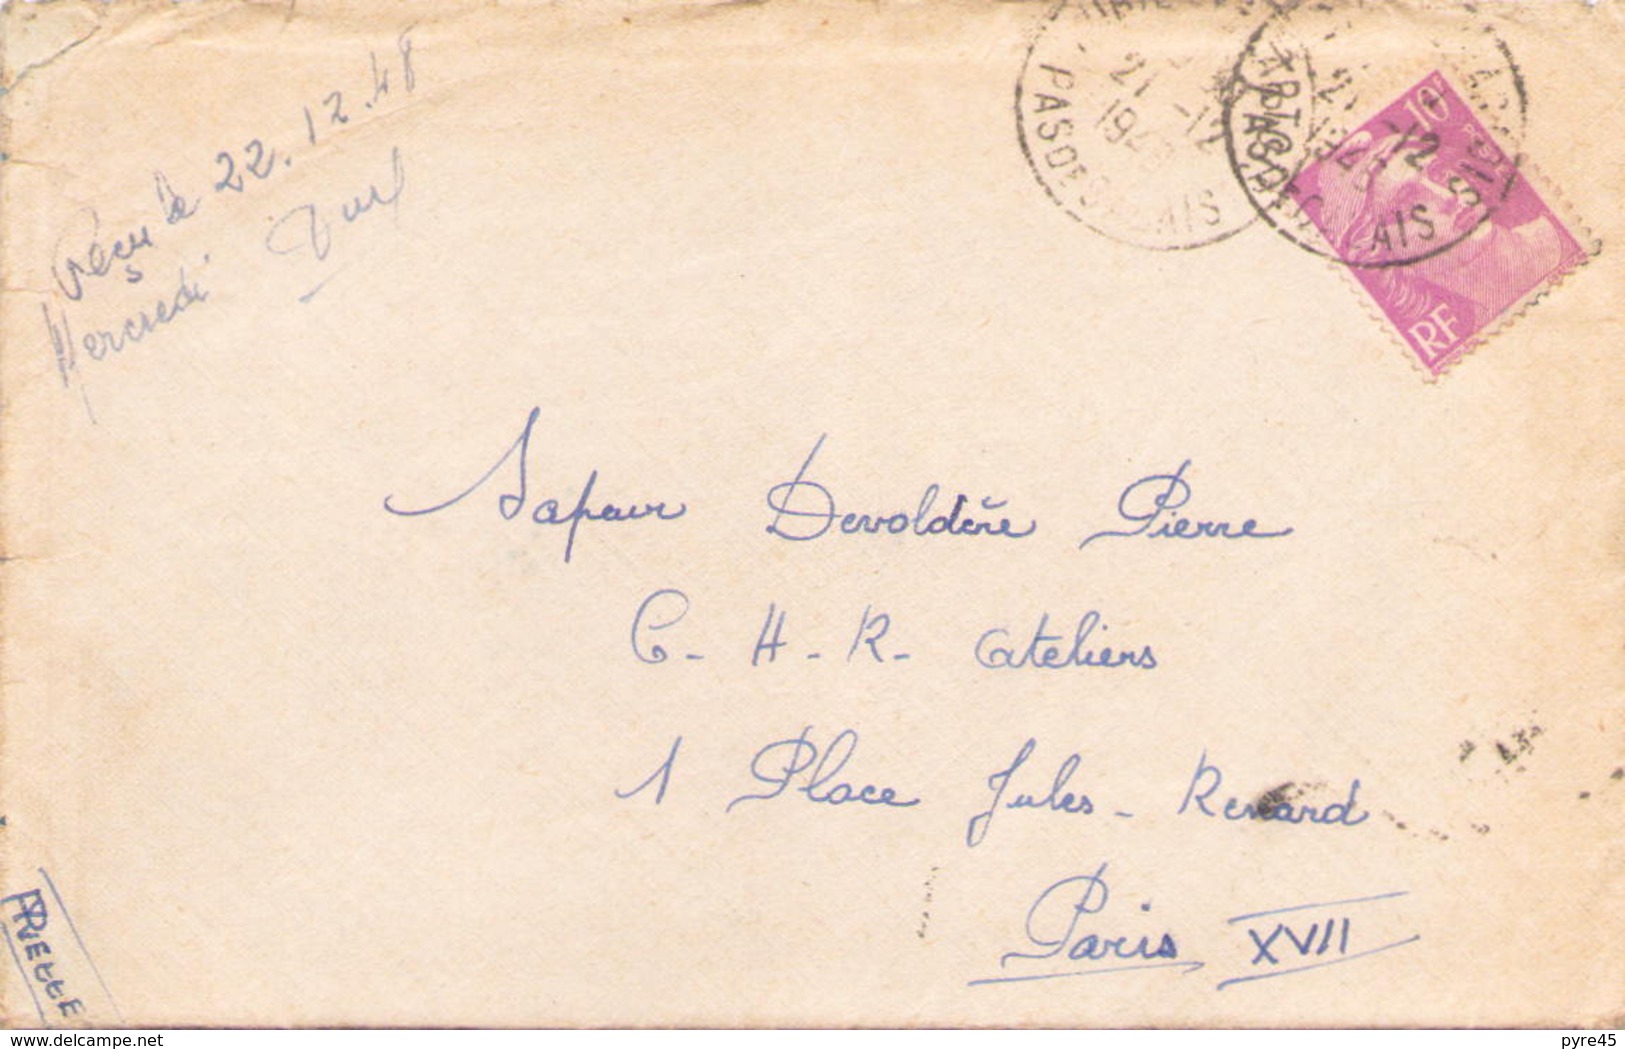 Reçu le 22.12.48
Mercredi
21 -12
1948
PAS DE CALAIS
21 -12
1948
PAS DE CALAIS
10F
RF
Sapeur Devoldère Pierre
C-H-R- Ateliers
1 Place Jules-Renard
Paris XVII
delcampe.net
pyre45